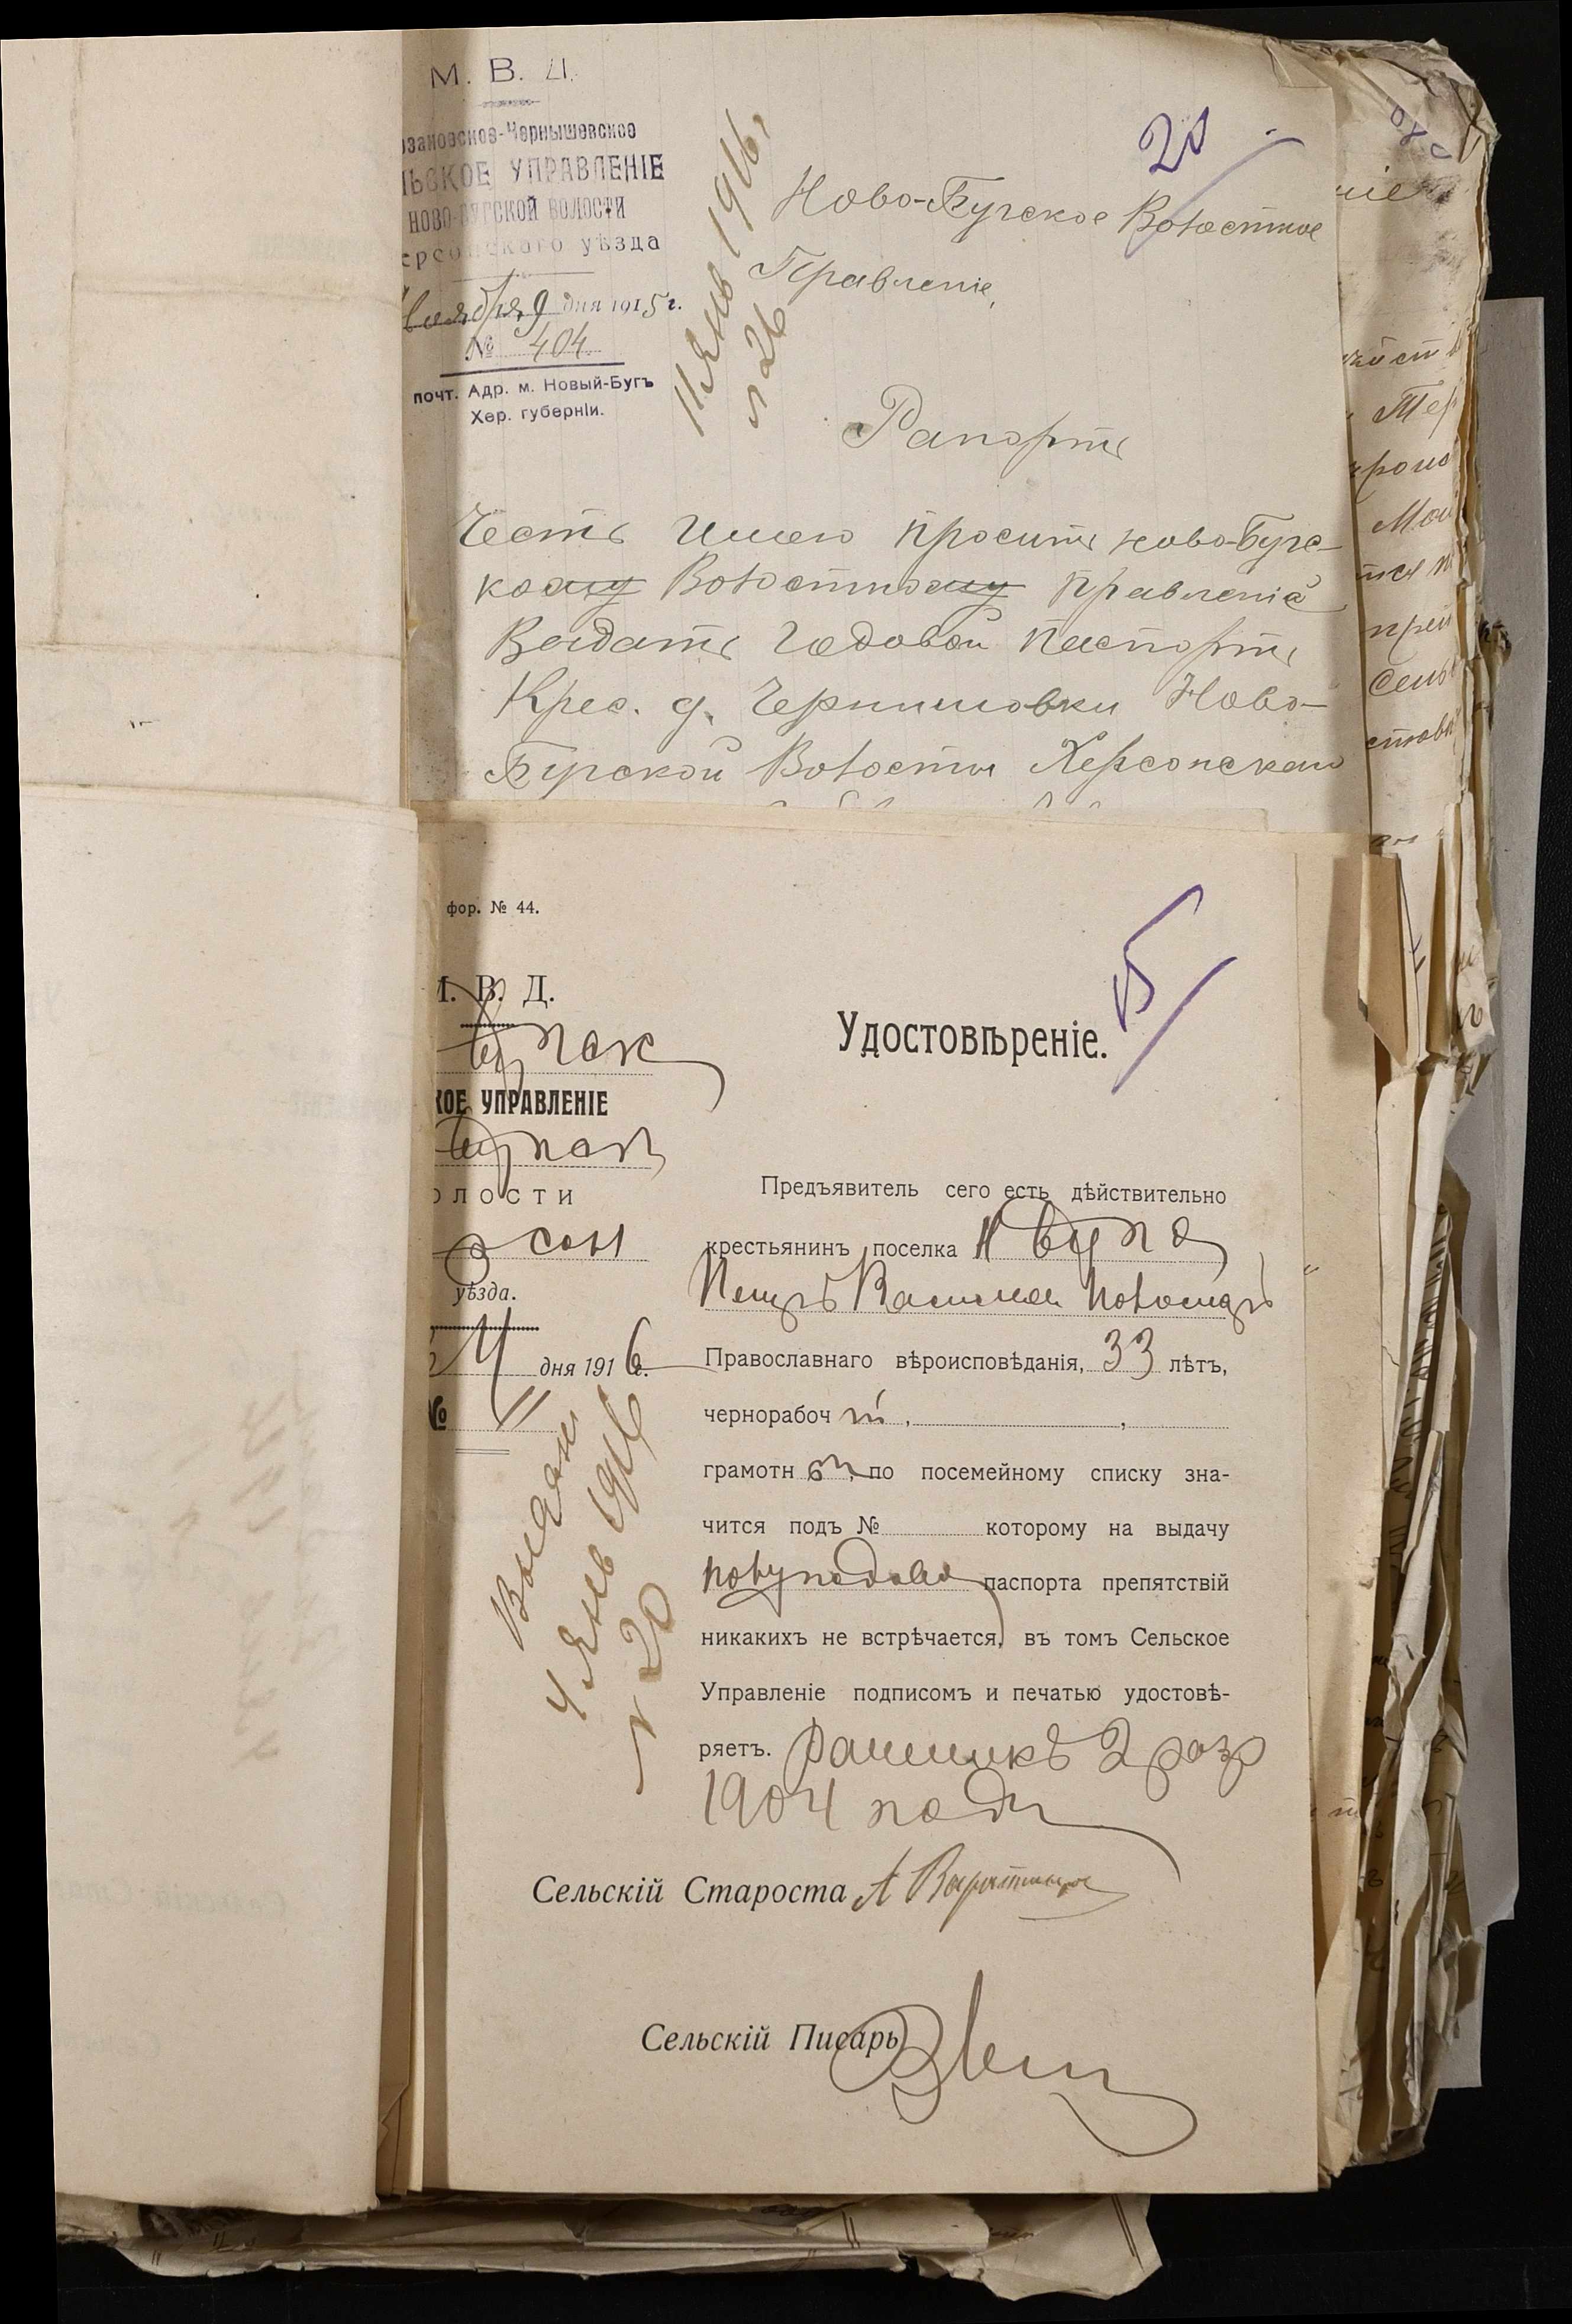 М. В. Д.
зановское-Чернышевское
ЛЬСКОЕ УПРАВЛЕНІЕ
НОВО-БУГСКОЙ ВОЛОСТИ
ерсонскаго уѣзда
9 дня 1915 г.
№ 404
почт. Адр. м. Новый-Бугъ
Хер. губерніи.
11 Янв 1916,
№ 26
20
Ново-Бугское Волостное
Правленіе,
Рапортъ
Честь Имею просить Ново-Бугс-
кому Волостному правленіе
Выдать Годовой паспортъ
Крес. д. Чернишовки Ново-
Бугской Волости Херсонскаго
фор. № 44.
М. В. Д.
КОЕ УПРАВЛЕНІЕ
ОЛОСТИ
сон
уѣзда.
4 дня 1916 г.
№ 11
Выдан
4 Янв 1916
№ 20
15
Удостовѣреніе.
Предъявитель сего есть дѣйствительно
крестьянинъ поселка Н Буга
Петръ Васильев
Православнаго вѣроисповѣданія, 33 лѣтъ,
чернорабочій,
грамотн , по посемейному списку зна-
чится подъ № которому на выдачу
полугодово паспорта препятствій
никакихъ не встрѣчается, въ томъ Сельское
Управленіе подписомъ и печатью удостовѣ-
ряетъ. Ратникъ 2 разр
1904 года
Сельскій Староста А
Сельскій Писарь